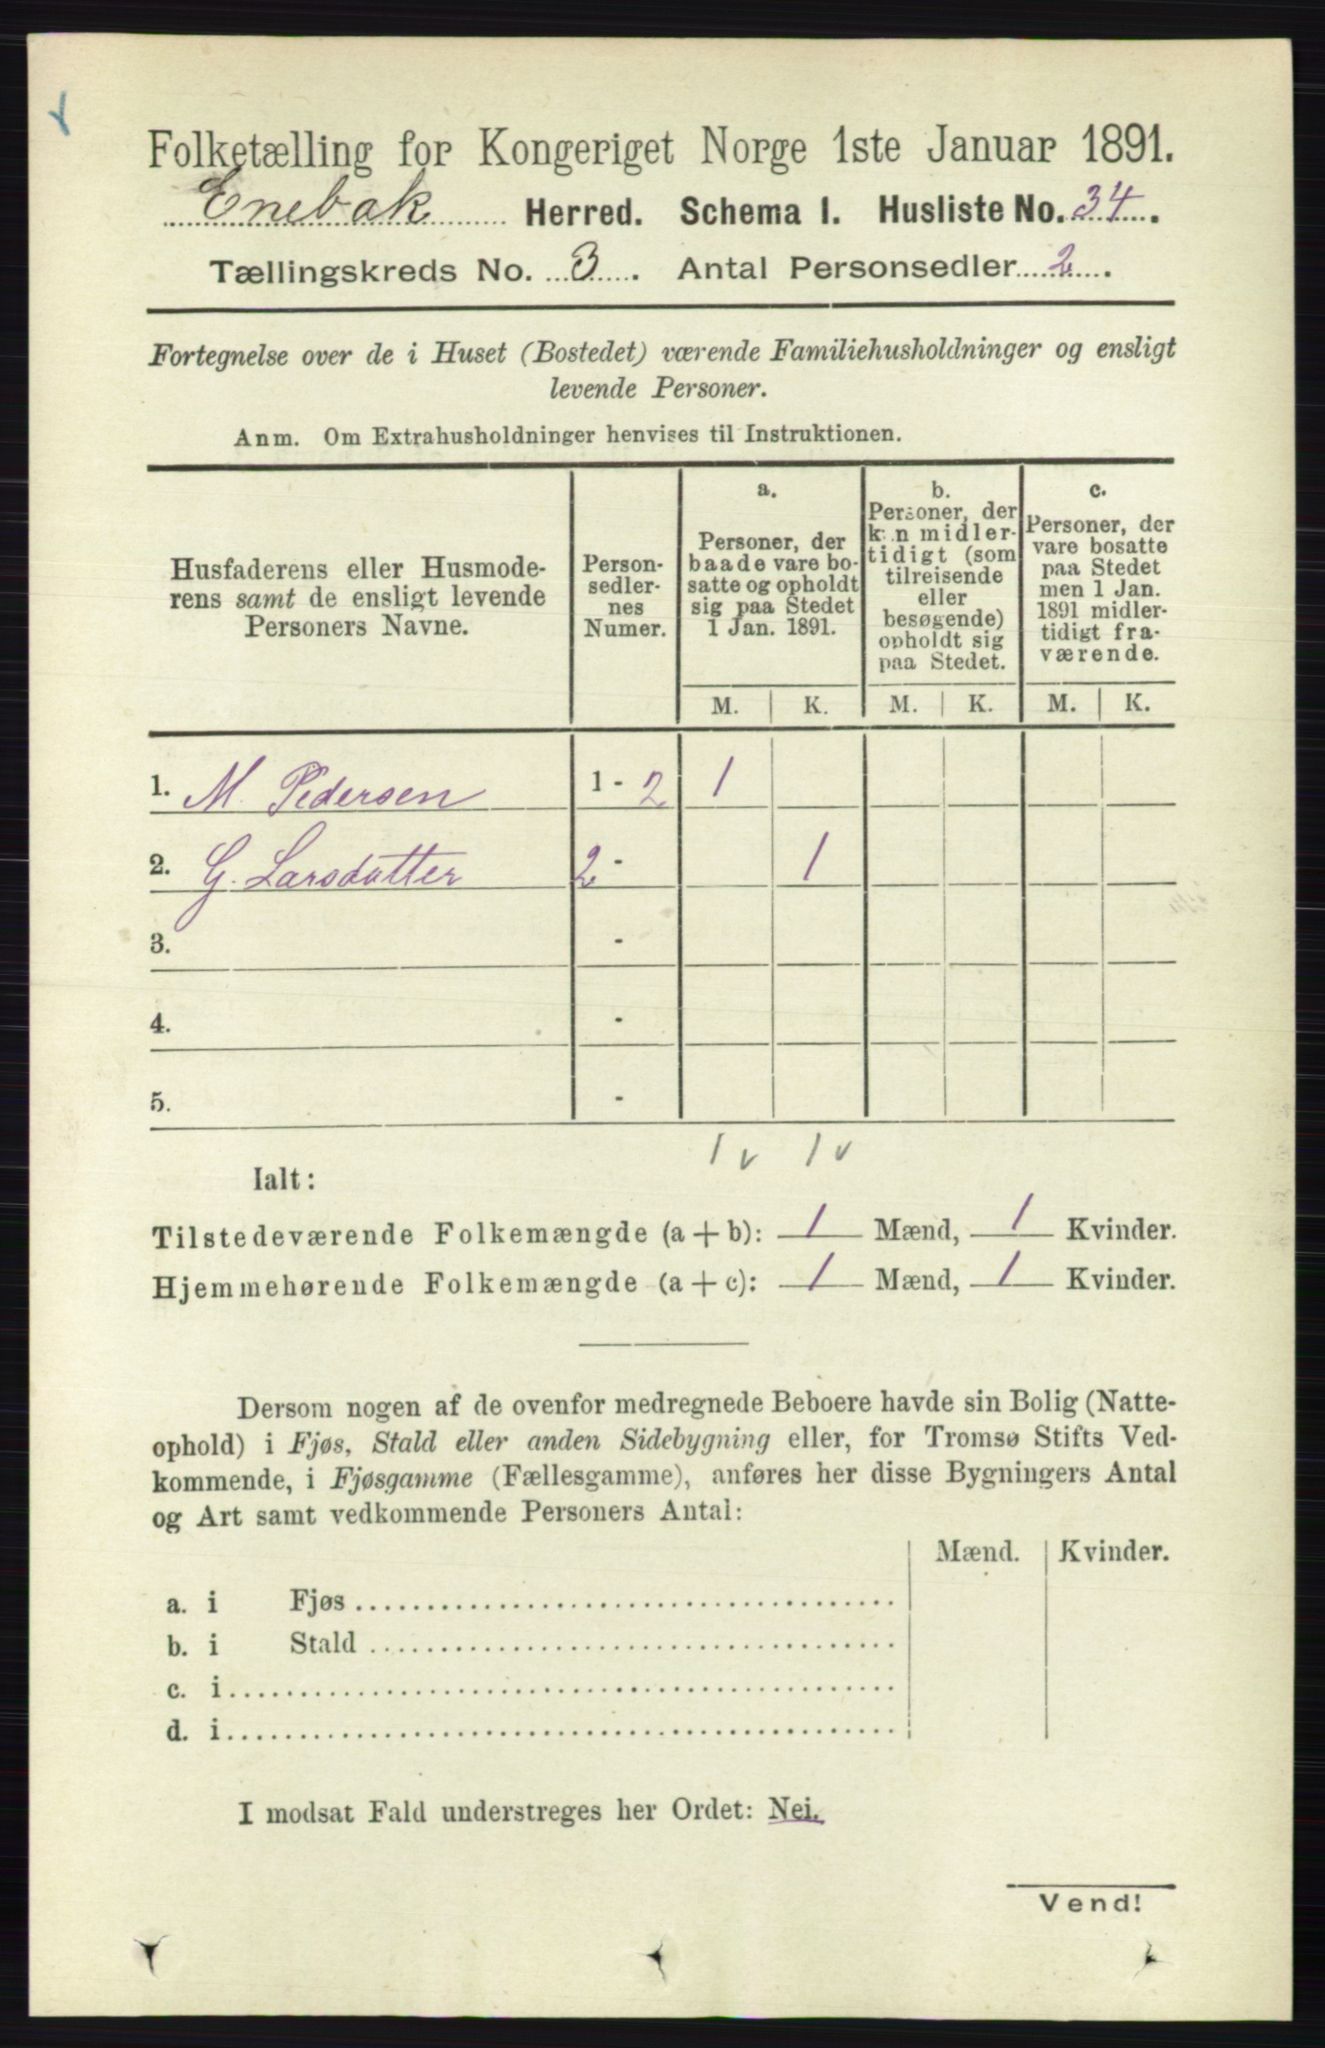 Folketælling for Kongeriget Norge 1ste Januar 1891.
Enebak Herred. Schema 1. Husliste No. 34.
Tællingskreds No. 3. Antal Personsedler 2.
Fortegnelse over de i Huset (Bostedet) værende Familiehusholdninger og ensligt
levende Personer.
Anm. Om Extrahusholdninger henvises til Instruktionen.
Husfaderens eller Husmode-
rens samt de ensligt levende
Personers Navne.
Person-
sedler-
nes
Numer.
a.
Personer, der
baade vare bo-
satte og opholdt
sig paa Stedet
1 Jan. 1891.
b.
Personer, der
kun midler-
tidigt (som
tilreisende
eller
besøgende)
opholdt sig
paa Stedet.
c.
Personer, der
vare bosatte
paa Stedet
men 1 Jan.
1891 midler-
tidigt fra-
værende.
M. K. M. K. M. K.
1. M. Pedersen 1 - 2 1
2. G. Larsdatter 2 - 1
3. -
4. -
5. -
1 v 1 v
Ialt:
Tilstedeværende Folkemængde (a + b): 1 Mænd, 1 Kvinder.
Hjemmehørende Folkemængde (a + c): 1 Mænd, 1 Kvinder.
Dersom nogen af de ovenfor medregnede Beboere havde sin Bolig (Natte-
ophold) i Fjøs, Stald eller anden Sidebygning eller, for Tromsø Stifts Ved-
kommende, i Fjøsgamme (Fællesgamme), anføres her disse Bygningers Antal
og Art samt vedkommende Personers Antal:
Mænd. Kvinder.
a. i Fjøs
b. i Stald
c. i
d. i
I modsat Fald understreges her Ordet: Nei.
Vend!